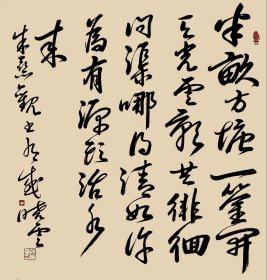 半畝方塘一鑒開
天光雲影共徘徊
問渠哪得清如許
為有源頭活水
來
朱熹觀書有感 曉雲